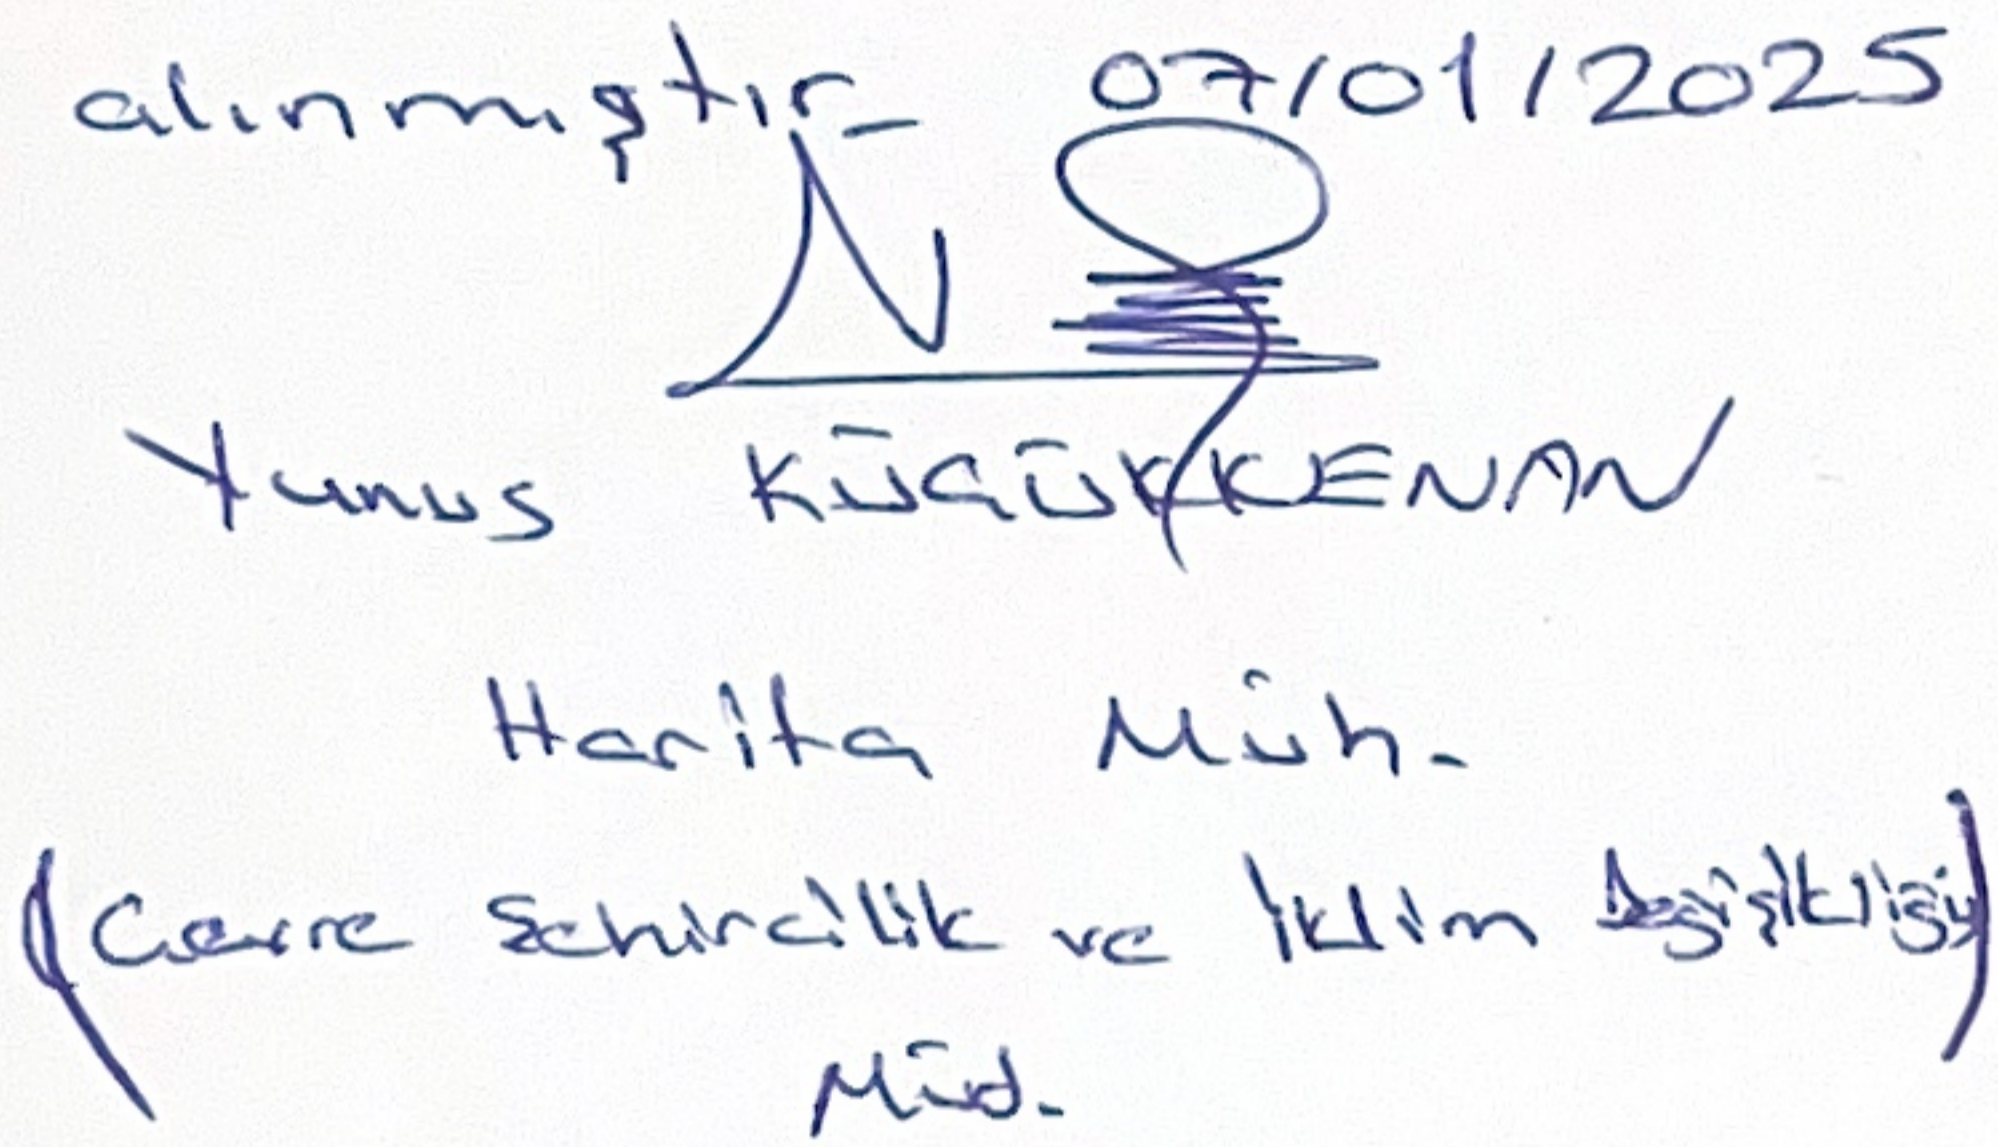 alınmıştır_ 07/01/2025
Yunus KÜÇÜKKENAN
Harita Müh.
(Cevre Şehircilik ve İklim Değişikliği)
Müd.